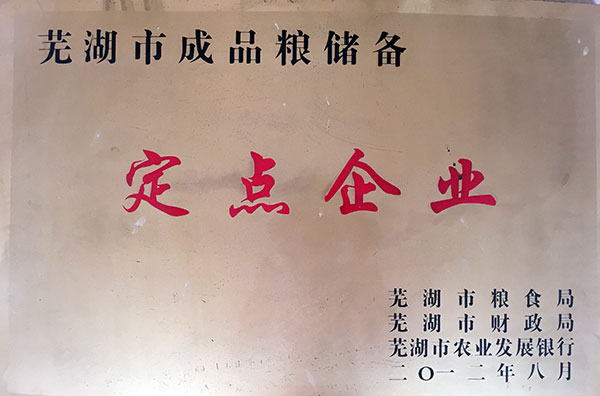 芜湖市成品粮储备
定点企业
芜湖市粮食局
芜湖市财政局
芜湖市农业发展银行
二〇一二年八月